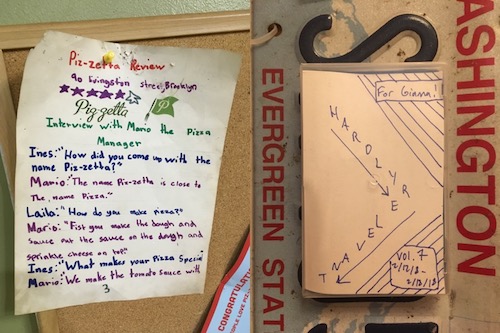 Piz-zetta Review
90 Livingston street, Brooklyn
Piz-zetta
Interview with Mario the Pizza
Manager
Ines: "How did you come up with the
name Piz-zetta?"
Mario: "The name Piz-zetta is close to
The name Pizza."
Laila: "How do you make pizza?"
Mario: "Fist you make the dough and
sauce put the sauce on the dough and
sprinkle cheese on top."
Ines: "What makes your Pizza Special
Mario: "We make the tomato sauce with
3
CONGRATULATI
OPLE LOVE PIZ
EVERGREEN STAT
ASHINGTON
For Gianna!
HARDLY RELEVANT
vol. 7